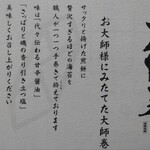 お大師様にみたてた大師巻
サックリと揚げた煎餅に
贅沢すぎるほどの海苔を
職人が一つ一つ手巻きで拵えております
味は「代々伝わる甘辛醤油」
「さっぱりと磯の香り引き立つ塩」
美味しくお召し上がりください